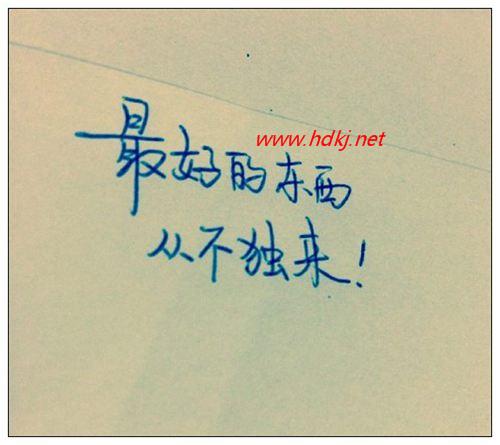 www.hdkj.net
最好的东西
从不独来!